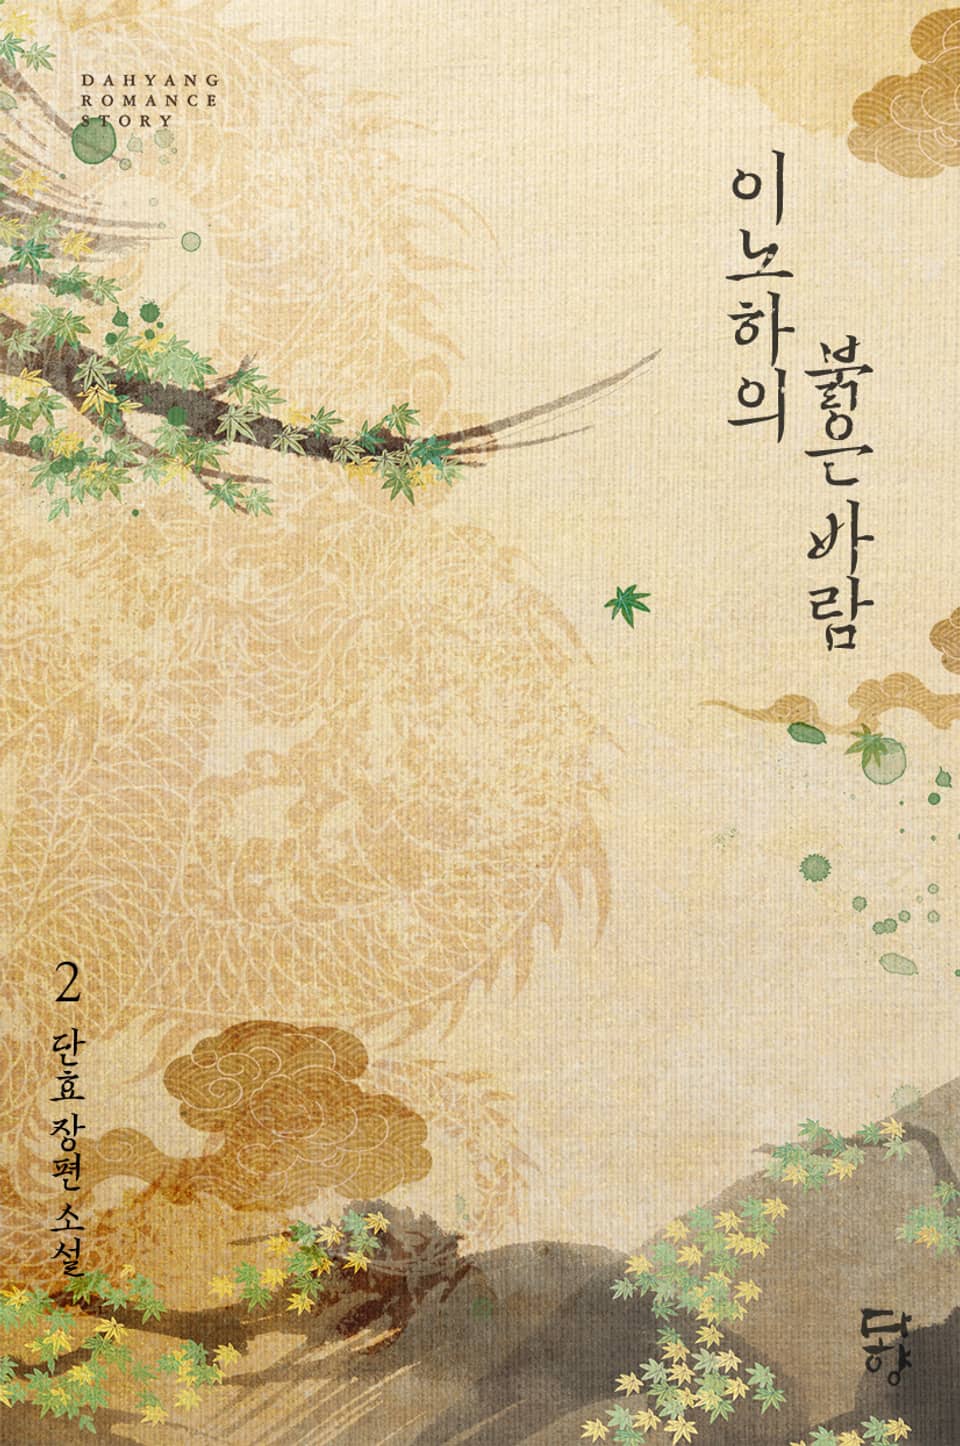 DAHYANG
ROMANCE
STORY
이노하의
붉은 바람
2 단효 장편 소설
다향